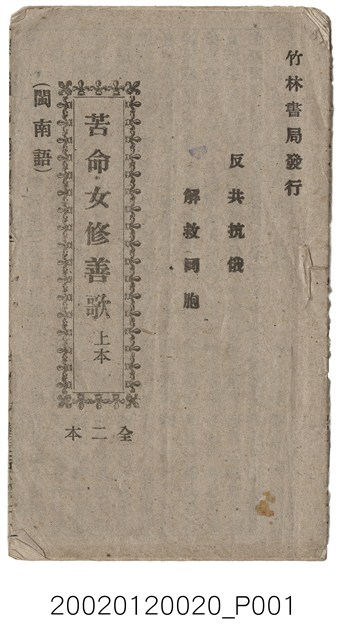 竹林書局發行
反共抗俄
解救同胞
苦命女修善歌 上本
全二本
(閩南語)
20020120020_P001